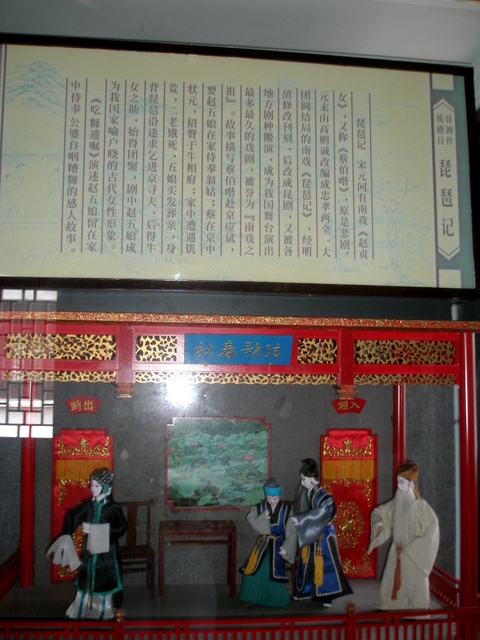 昆剧传
统剧目
琵琶记
琵琶记 宋元间有南戏《赵贞
女》，又称《蔡伯喈》，原是悲剧，
元末由高则诚改编成忠孝两全、大
团圆结局的南戏《琵琶记》，经明
清修改刊刻，后改成昆剧，又被各
地方剧种搬演，成为我国舞台演出
最多最久的戏剧，被誉为『南戏之
祖』。故事描写蔡伯喈赴京应试，
要赵五娘在家侍奉翁姑；蔡在京中
状元，招赘于牛相府，家中遭遇饥
荒，二老饿死，五娘买发葬亲，身
背琵琶沿途求乞进京寻夫，后得牛
女之助，始得团聚，剧中赵五娘成
为我国家喻户晓的古代女性形象。
《吃糠遗嘱》演述赵五娘留在家
中侍奉公婆自咽糟糠的感人故事。
入相
出將